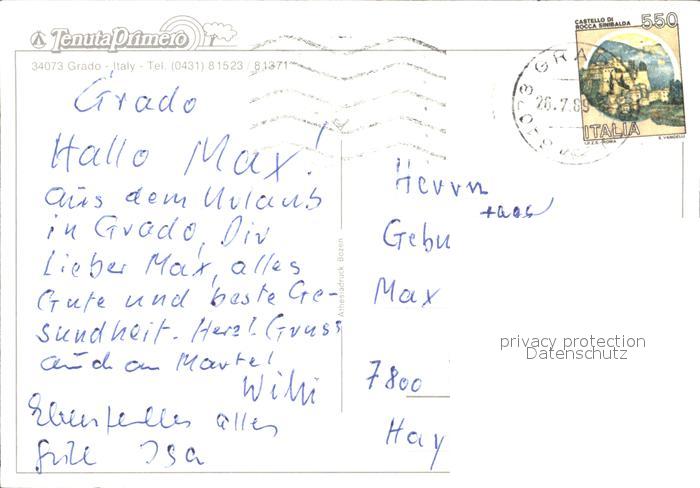 Tenuta Primero
34073 Grado - Italy - Tel. (0431) 81523 / 81371
Grado
Hallo Max!
aus dem Urlaub
in Grado, Dir
Lieber Max, alles
Gute und beste Ge-
sundheit. Herzl. Gruss
auch an Martel
Willi
Ebenfalls alles
Gute Isa
Athesiadruck Bozen
CASTELLO DI
ROCCA SINIBALDA
550
ITALIA
I.P.Z.S. ROMA
E. VANGELLI
34073 GRA
26.7.89
Herrn
Gebu
Max
7800
Hay
privacy protection
Datenschutz